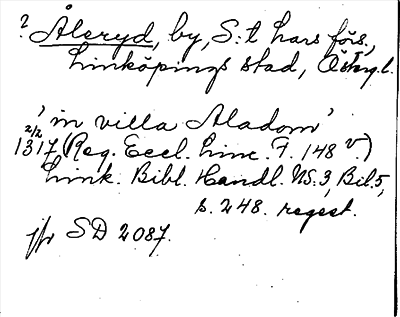 ? Åleryd, by, S:t Lars förs.,
Linköpings stad, Östergl.
'in villa Aladom'
2/2
1317 (Reg. Eccl. Linc. F. 148 v.)
Link. Bibl. Handl. NS. 3, Bil. 5,
s. 248. regest.
jfr SD 2087.